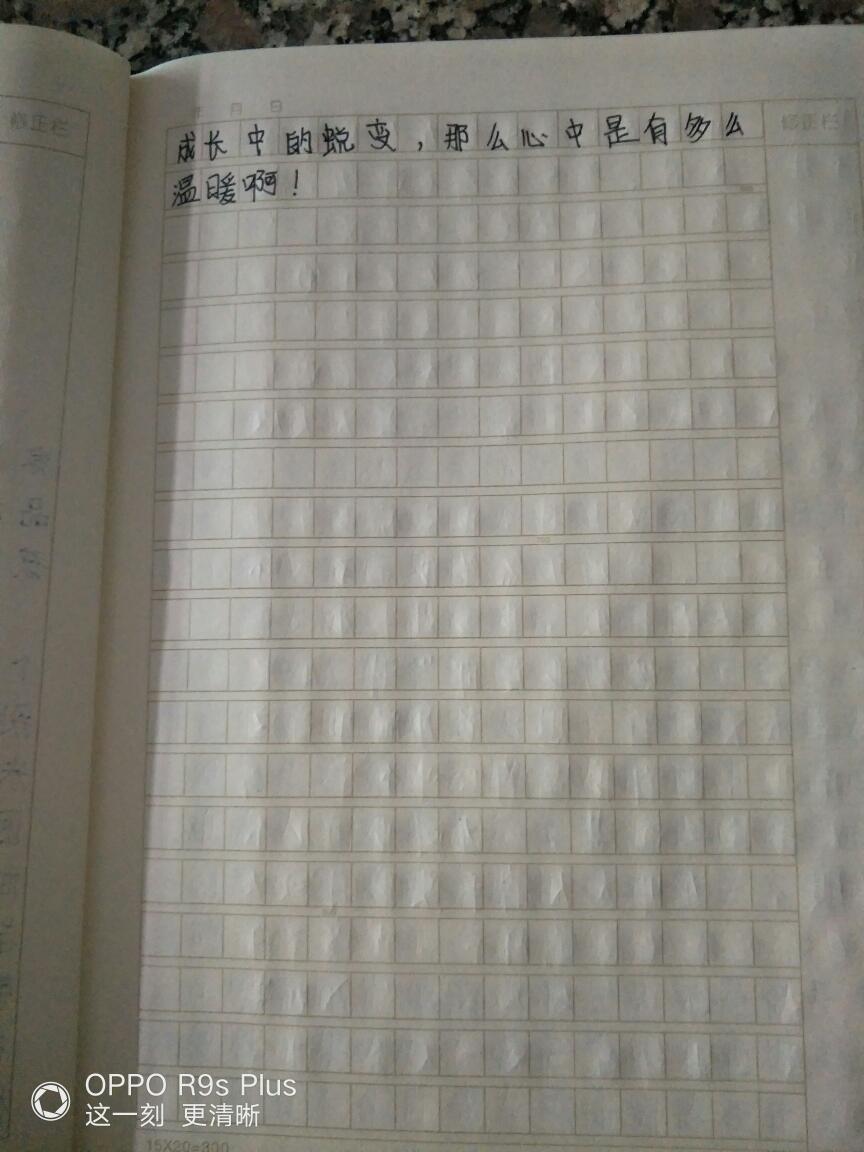 年 月 日
修正栏
修正栏
成长中的蜕变，那么心中是有多么
温暖啊！
OPPO R9s Plus
这一刻 更清晰
15X20=300